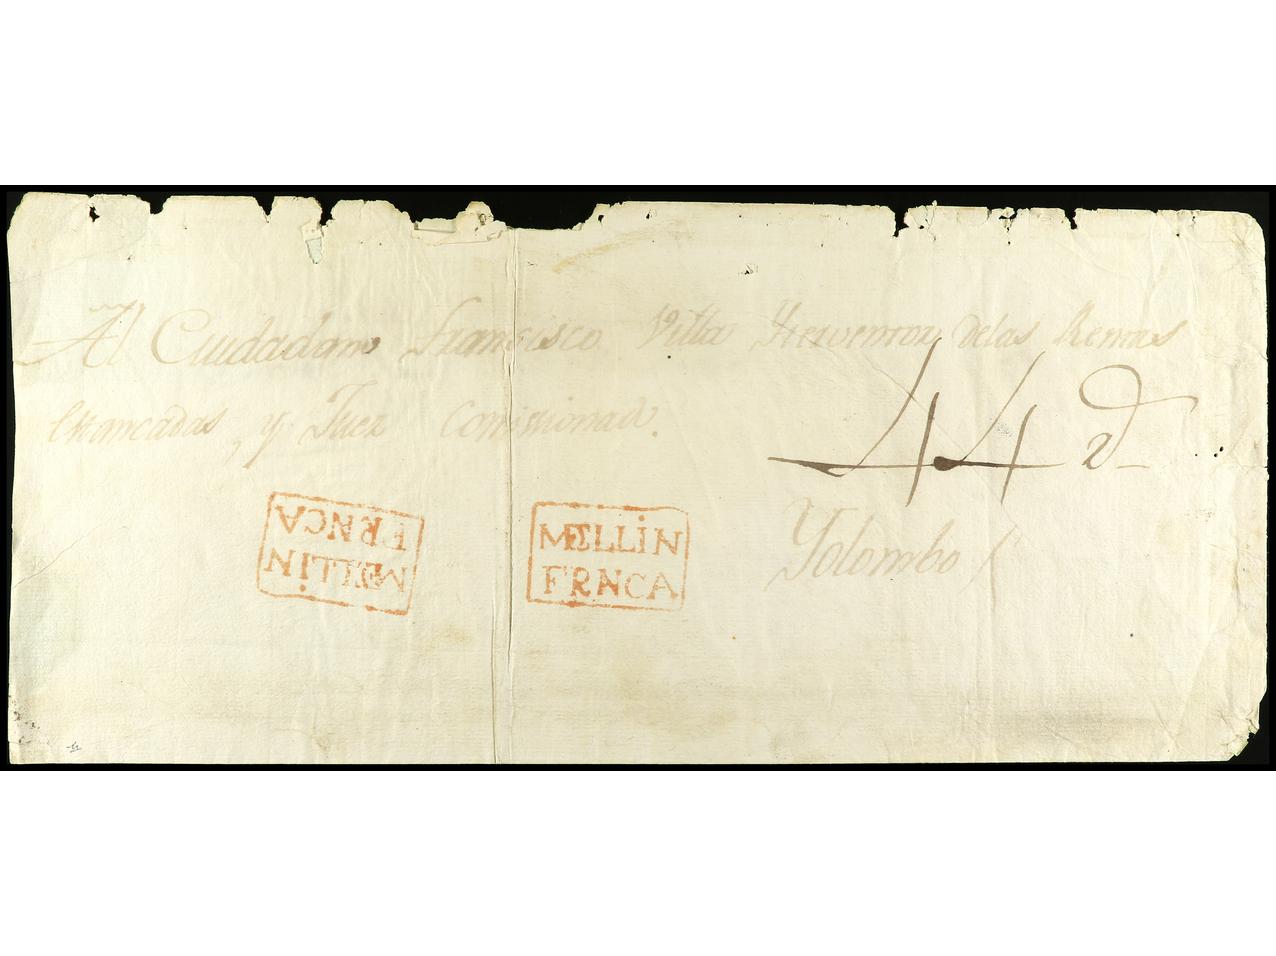 Al Ciudadano Francisco Villa Ynterventor delas Rentas
Estancadas, y Juez Comissionado.
44 d
MELLIN
FRNCA
MELLIN
FRNCA
Yolombo